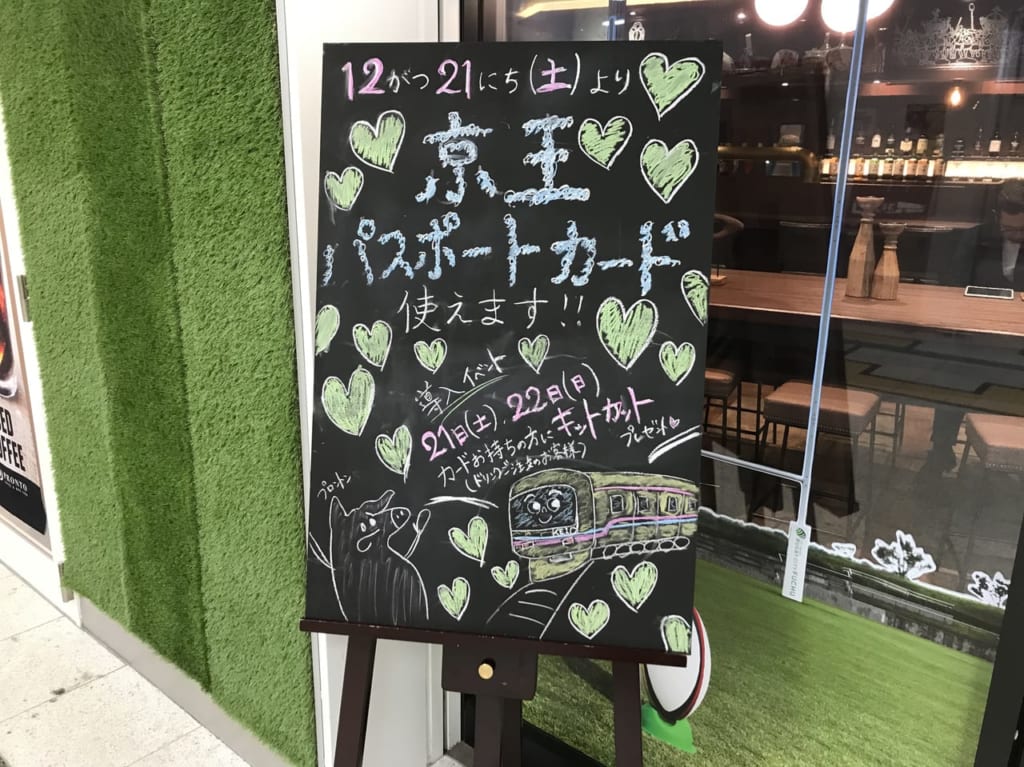 12がつ21にち(土)より
京王
パスポートカード
使えます!!
導入イベント
21日(土)、22日(日)
カードお持ちの方にキットカット
(ドリンクご注文のお客様)
プレゼント♡
プロントン
KEIO
COFFEE
PRONTO